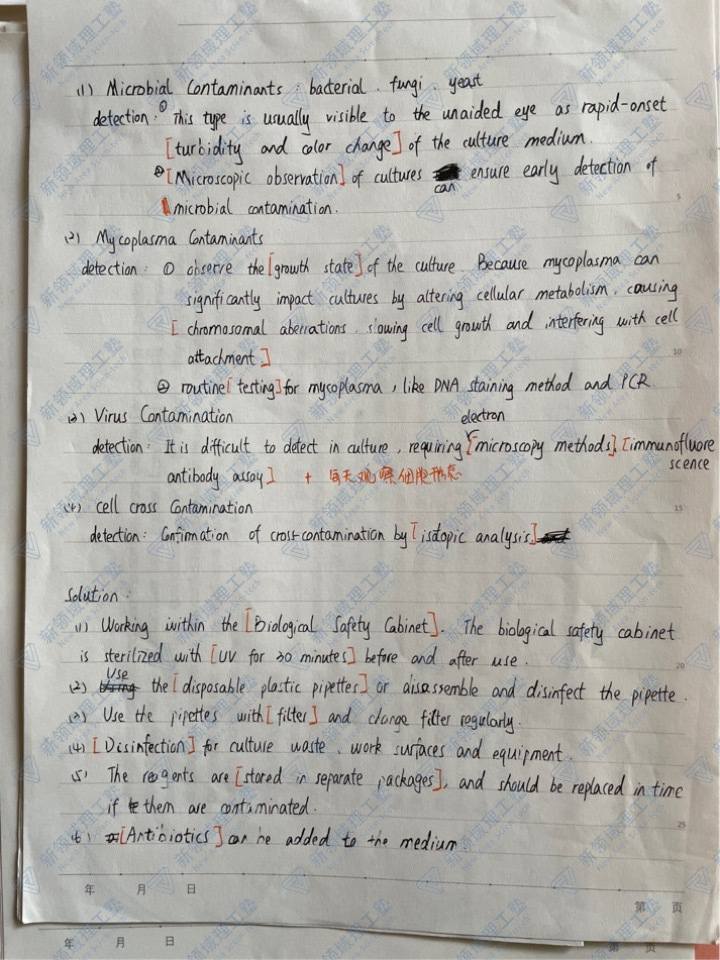 (1) Microbial Contaminants : bacterial . fungi . yeast
detection : ① This type is usually visible to the unaided eye as rapid-onset
[turbidity and color change] of the culture medium.
② [Microscopic observation] of cultures can ensure early detection of
microbial contamination.
(2) Mycoplasma Contaminants
detection : ① observe the [growth state] of the culture. Because mycoplasma can
significantly impact cultures by altering cellular metabolism . causing
[ chromosomal aberrations . slowing cell growth and interfering with cell
attachment ]
② routine [testing] for mycoplasma , like DNA staining method and PCR.
(3) Virus Contamination
detection : It is difficult to detect in culture , requiring [electron microscopy methods]. [immunofluore
scence
antibody assay] + 每天观察细胞形态
(4) cell cross Contamination
detection : Confirmation of cross-contamination by [isotopic analysis.]
Solution :
(1) Working within the [Biological Safety Cabinet]. The biological safety cabinet
is sterilized with [UV for 30 minutes] before and after use .
(2) Use the [disposable plastic pipettes] or disassemble and disinfect the pipette .
(3) Use the pipettes with [filter] and change filter regularly.
(4) [Disinfection] for culture waste . work surfaces and equipment .
(5) The reagents are [stored in separate packages], and should be replaced in time
if them are contaminated .
(6) [Antibiotics] can be added to the medium .
5
10
15
20
25
年 月 日
第 页
年 月 日
第 页
新领域理工塾
New Scien-tech